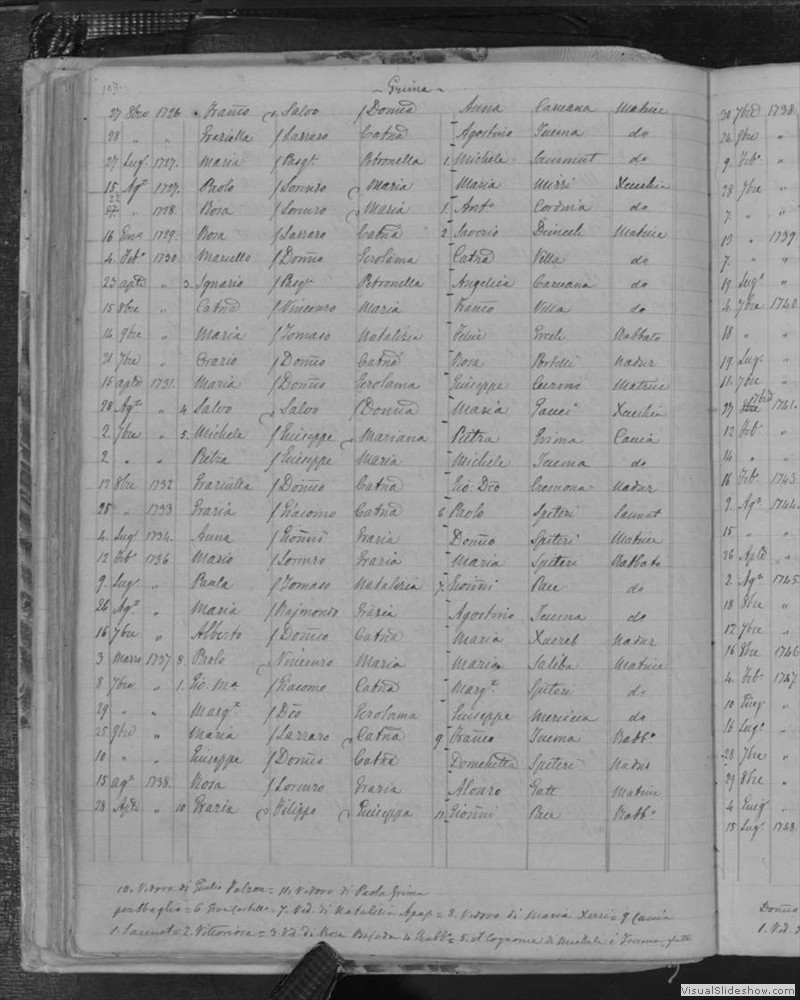 107.
- Grima -
27 8bre 1726 Franco Salvo f Domca Anna Caruana Matrice
28 " " Graziella f Lazzaro Catna Agostino Teuma do
27 Lug. 1727. Maria f Pasqe Petronella 1. Michele Sammut do
15 Agto 1727. Paolo f Lorenzo Maria Maria Mizzi Xeuchia
22 27 " 1728. Rosa f Lorenzo Maria 1. Anto Cordina do
16 Geno 1729. Rosa f Lazzaro Catna 2. Saverio Matrice
4 Febo 1730. Marcello f Domco Gerolama Catna Villa do
23 aple " 3. Ignazio f Pasqe Petronella Angelica Caruana do
15 8bre " Catna f Vincenzo Maria Franco Villa do
14 9bre " Maria f Tomaso Natalizia Felice Rabbato
21 7bre " Grazio f Domco Catna Rosa Portelli Nadur
15 aple 1731. Maria f Domco Gerolama Giuseppe Matrice
28 Agto " 4 Salvo Salvo f Domca Maria Xeuchia
2 7bre " 5. Michele f Giuseppe Mariana Pietra Grima Caccia
2 " " Pietra f Giuseppe Maria Michele Teuma do
12 8bre 1732 Graziella f Domco Catna Gio: Dio Cremona Nadur
25 " 1733 Grazia f Giacomo Catna 6 Paolo Spiteri Sannat
4 Lug. 1734. Anna f Gionni Grazia Domco Spiteri Matrice
12 Febo 1736 Mario f Lorenzo Grazia Maria Spiteri Rabbato
9 Lug. " Paula f Tomaso Natalizia 7. Gionni Pace do
26 Agto " Maria f Rajmondo Grazia Agostino Teuma do
16 7bre " Alberto f Domco Catna Maria Xuereb Nadur
3 Marzo 1737 8. Paolo Vincenzo Maria Maria Saliba Matrice
8 7bre " 1. Gio. Ma f Giacomo Catna Margta Spiteri do
29 " " Margta f Dio Gerolama Giuseppe Mercieca do
25 9bre " Maria f Lazzaro Catna 9. Franco Teuma Rabbo
10 " " Giuseppe f Domco Catna Domchella Spiteri Nadur
15 agto 1738. Rosa f Lorenzo Grazia Alonzo Gatt Matrice
28 Aple " 10 Grazia Filippo Giuseppa 11. Gionni Pace Rabbo
10. Vedova di Giulio = 11. Vedovo di Paola Grima
per Sbaglio = 6 = 7. Ved. di Natalizia Apap = 8. Vedovo di Maria Xerri = 9 Caccia
1. Sannat = 2. Vittoriosa = 3. Vd. di Rosa 4 Rabbo = 5. il Cognome di Michele è Teuma,
30 7bre 1738
26 9bre "
9. Febo "
28 7bre "
7. " "
13 " 1739
7. " "
19 Lugo "
4. 7bre 1740
18 " "
19 Lug. "
11. 7bre "
27 7bre 1741.
12 Febo "
14 " "
16 Febo 1743
2. Agto 1744.
15 " "
26 Aple "
2. Agto 1745
18 8bre "
12 7bre "
16 8bre 1746
4. Febo 1747.
10 Giug. "
16 Lugo "
28 7bre "
29 8bre "
4 Giug. "
15 Lug. 1748.
Domco
1. Ved.
VisualSlideshow.com